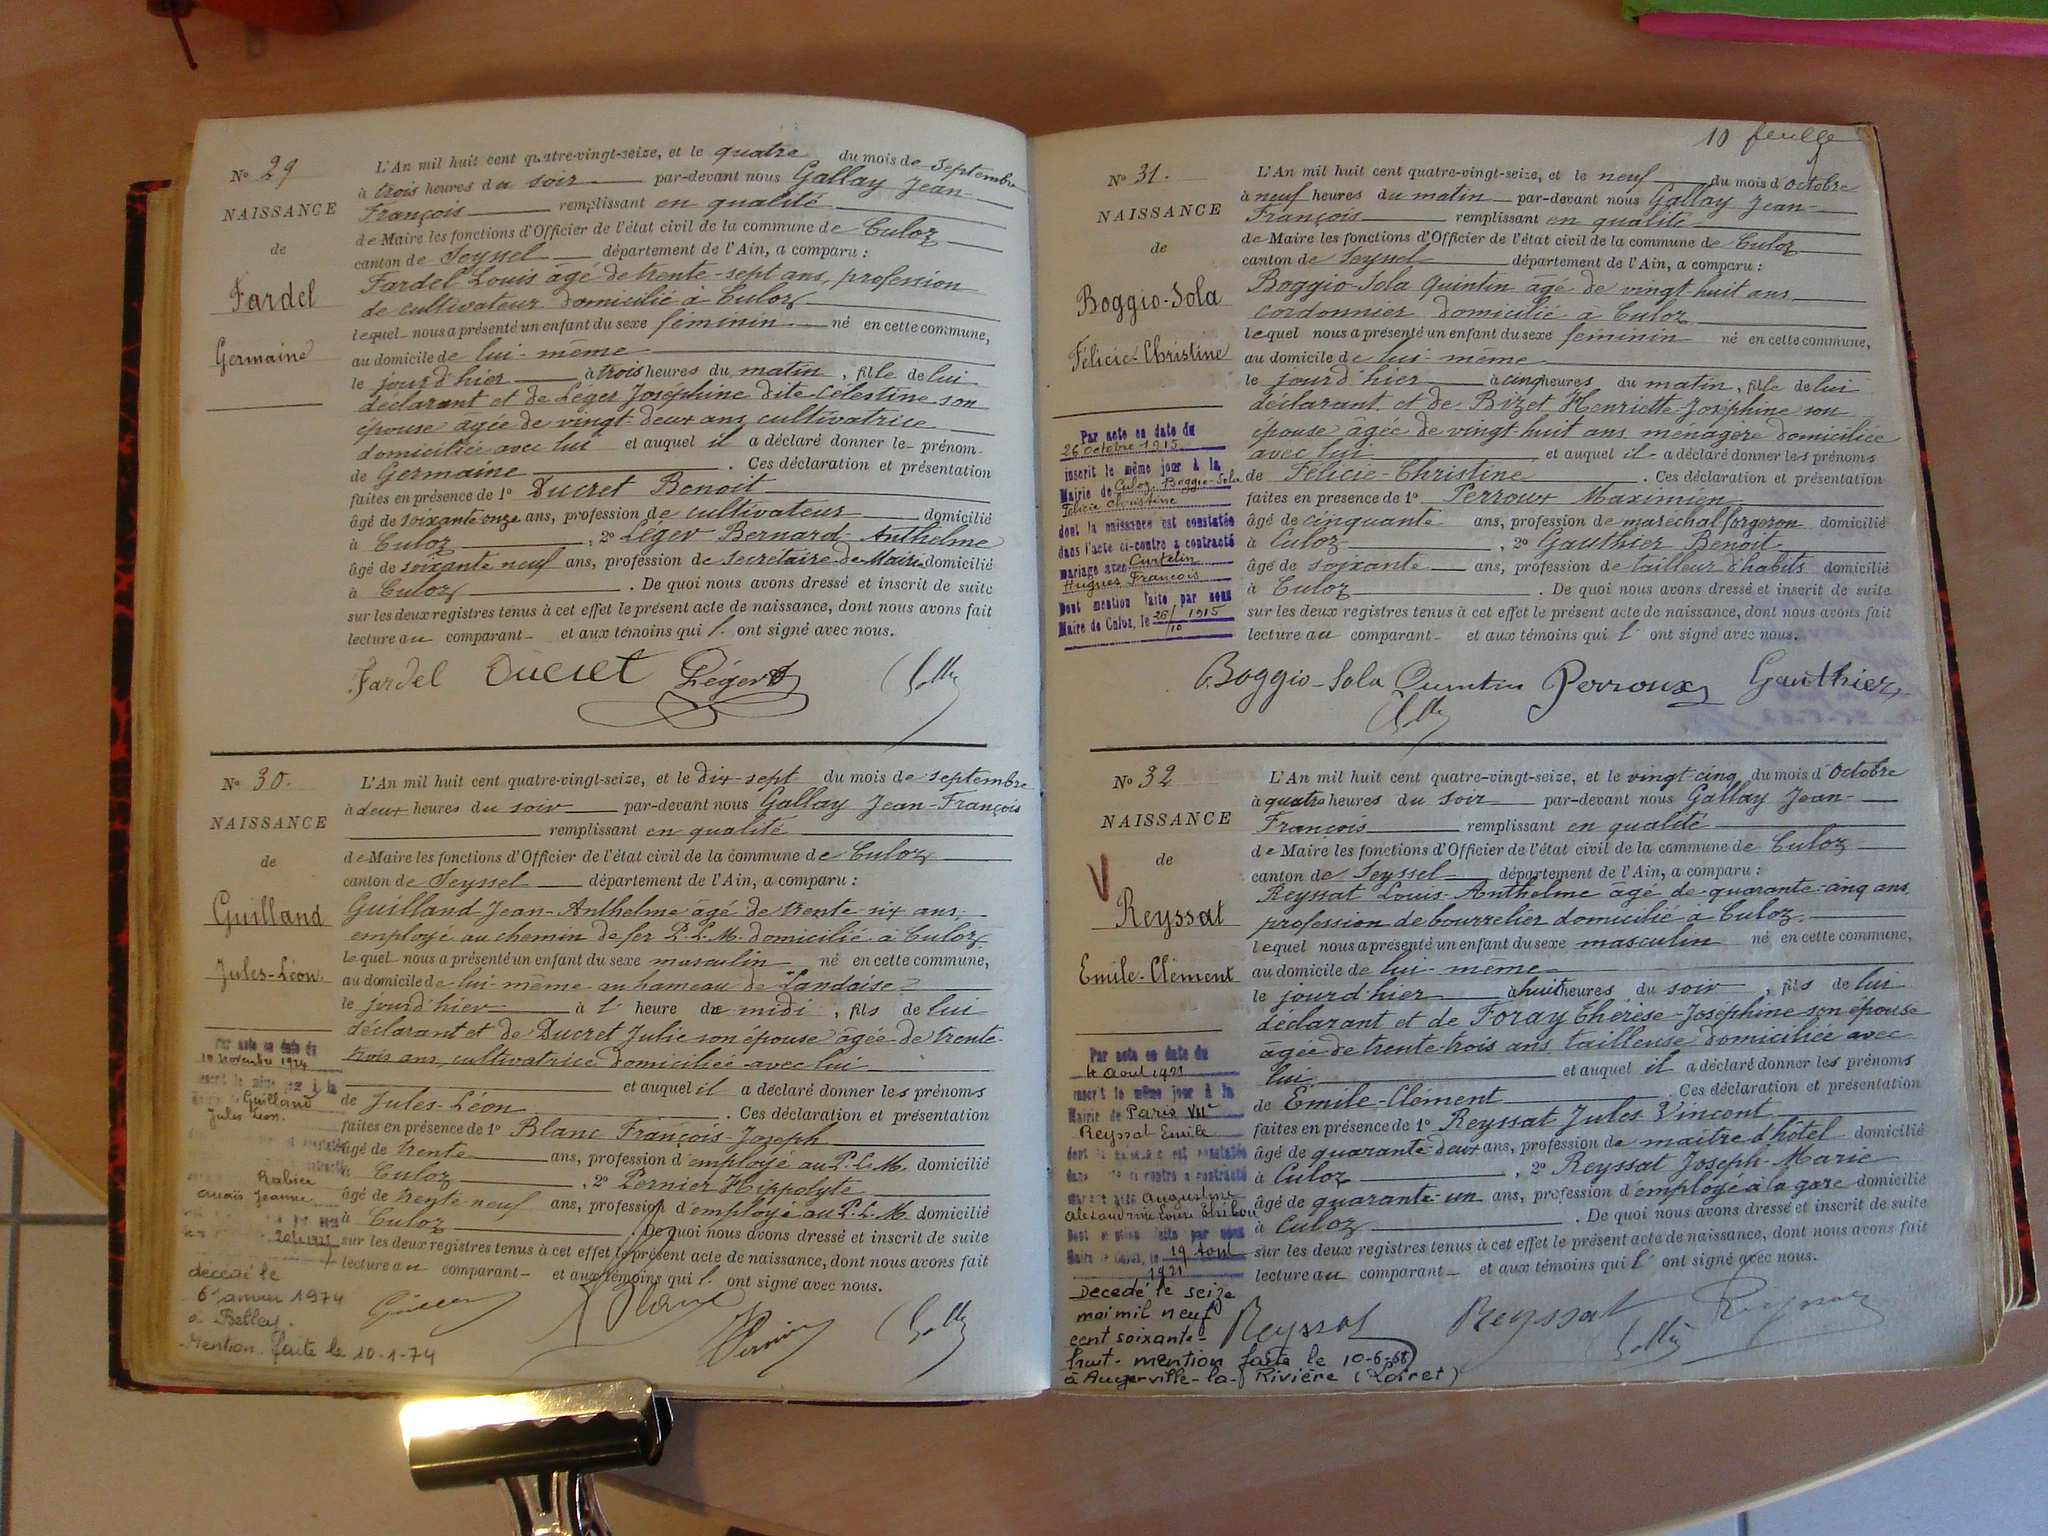 No 29
NAISSANCE
de
Fardel
Germaine
L'An mil huit cent quatre-vingt-seize, et le quatre du mois de septembre
à trois heures du soir par-devant nous Gallay Jean-
François remplissant en qualité
de Maire les fonctions d'Officier de l'état civil de la commune de Culoz
canton de Seyssel département de l'Ain, a comparu :
Fardel Louis âgé de trente-sept ans, profession
de cultivateur domicilié à Culoz
lequel nous a présenté un enfant du sexe féminin né en cette commune,
au domicile de lui-même
le jourd'hier à trois heures du matin, fille de lui
déclarant et de Léger Joséphine dite Célestine son
épouse agée de vingt deux ans cultivatrice
domiciliée avec lui et auquel il a déclaré donner le prénom
de Germaine . Ces déclaration et présentation
faites en présence de 1° Ducret Benoit
âgé de soixante onze ans, profession de cultivateur domicilié
à Culoz , 2° Léger Bernard-Anthelme
âgé de soixante neuf ans, profession de secrétaire de Mairie domicilié
à Culoz . De quoi nous avons dressé et inscrit de suite
sur les deux registres tenus à cet effet le présent acte de naissance, dont nous avons fait
lecture au comparant et aux témoins qui l' ont signé avec nous.
Fardel Ducret Léger
No 30.
NAISSANCE
de
Guilland
Jules-Léon
Par acte en date du
10 novembre 1924
inscrit le même jour à la
Guilland
Jules Léon.
Rabier
Jeanne
décédé le
6 janvier 1974
à Belley.
Mention faite le 10-1-74
L'An mil huit cent quatre-vingt-seize, et le dix-sept du mois de septembre
à deux heures du soir par-devant nous Gallay Jean-François
remplissant en qualité
de Maire les fonctions d'Officier de l'état civil de la commune de Culoz
canton de Seyssel département de l'Ain, a comparu :
Guilland Jean-Anthelme âgé de trente-six ans,
employé au chemin de fer P.L.M. domicilié à Culoz
lequel nous a présenté un enfant du sexe masculin né en cette commune,
au domicile de lui-même au hameau de Landaise
le jourd'hier à l' heure de midi, fils de lui
déclarant et de Ducret Julie son épouse âgée de trente-
trois ans, cultivatrice domiciliée avec lui
et auquel il a déclaré donner les prénoms
de Jules-Léon . Ces déclaration et présentation
faites en présence de 1° Blanc François-Joseph
âgé de trente ans, profession d'employé au P.L.M. domicilié
à Culoz , 2° Pernier Hippolyte
âgé de trente-neuf ans, profession d'employé au P.L.M. domicilié
à Culoz . De quoi nous avons dressé et inscrit de suite
sur les deux registres tenus à cet effet le présent acte de naissance, dont nous avons fait
lecture au comparant et aux témoins qui l' ont signé avec nous.
10 feuille
No 31.
NAISSANCE
de
Boggio-Sola
Félicie-Christine
Par acte en date du
26 octobre 1915
inscrit le même jour à la
Mairie de Culoz, Boggio-Sola
Félicie Christine
dont la naissance est constatée
dans l'acte ci-contre a contracté
mariage avec Curtelin
Hugues François
Dont mention faite par nous
Maire de Culoz, le 26/10 1915
L'An mil huit cent quatre-vingt-seize, et le neuf du mois d'octobre
à neuf heures du matin par-devant nous Gallay Jean-
François remplissant en qualité
de Maire les fonctions d'Officier de l'état civil de la commune de Culoz
canton de Seyssel département de l'Ain, a comparu :
Boggio-Sola Quintin âgé de vingt-huit ans
cordonnier domicilié à Culoz
lequel nous a présenté un enfant du sexe féminin né en cette commune,
au domicile de lui-même
le jourd'hier à cinq heures du matin, fille de lui
déclarant et de Bizet Henriette-Joséphine son
épouse agée de vingt huit ans ménagère domiciliée
avec lui et auquel il a déclaré donner les prénoms
de Félicie-Christine . Ces déclaration et présentation
faites en présence de 1° Perroux Maximien
âgé de cinquante ans, profession de maréchal forgeron domicilié
à Culoz , 2° Gauthier Benoit
âgé de soixante ans, profession de tailleur d'habits domicilié
à Culoz . De quoi nous avons dressé et inscrit de suite
sur les deux registres tenus à cet effet le présent acte de naissance, dont nous avons fait
lecture au comparant et aux témoins qui l' ont signé avec nous.
Boggio-Sola Quintin Perroux Gauthier
No 32
NAISSANCE
de
V
Reyssat
Emile-Clément
Par acte en date du
4 aout 1921
inscrit le même jour à la
Mairie de Paris VIIe
Reyssat Emile
dont la naissance est constatée
dans l'acte ci-contre a contracté
mariage avec Augustine
Alexandrine Louise
Dont mention faite par nous
Maire de Culoz, le 19 Aout
1921
Décédé le seize
mai mil neuf
cent soixante-
huit- mention faite le 10-6-68
à Augerville-la-Rivière (Loiret)
L'An mil huit cent quatre-vingt-seize, et le vingt-cinq du mois d'octobre
à quatre heures du soir par-devant nous Gallay Jean-
François remplissant en qualité
de Maire les fonctions d'Officier de l'état civil de la commune de Culoz
canton de Seyssel département de l'Ain, a comparu :
Reyssat Louis-Anthelme âgé de quarante-cinq ans
profession de bourrelier domicilié à Culoz
lequel nous a présenté un enfant du sexe masculin né en cette commune,
au domicile de lui-même
le jourd'hier à huit heures du soir, fils de lui
déclarant et de Foray Thérèse-Joséphine son épouse
âgée de trente-trois ans tailleuse domiciliée avec
lui et auquel il a déclaré donner les prénoms
de Emile-Clément . Ces déclaration et présentation
faites en présence de 1° Reyssat Jules Vincent
âgé de quarante-deux ans, profession de maître d'hôtel domicilié
à Culoz , 2° Reyssat Joseph-Marie
âgé de quarante-un ans, profession d'employé à la gare domicilié
à Culoz . De quoi nous avons dressé et inscrit de suite
sur les deux registres tenus à cet effet le présent acte de naissance, dont nous avons fait
lecture au comparant et aux témoins qui l' ont signé avec nous.
Reyssat Reyssat